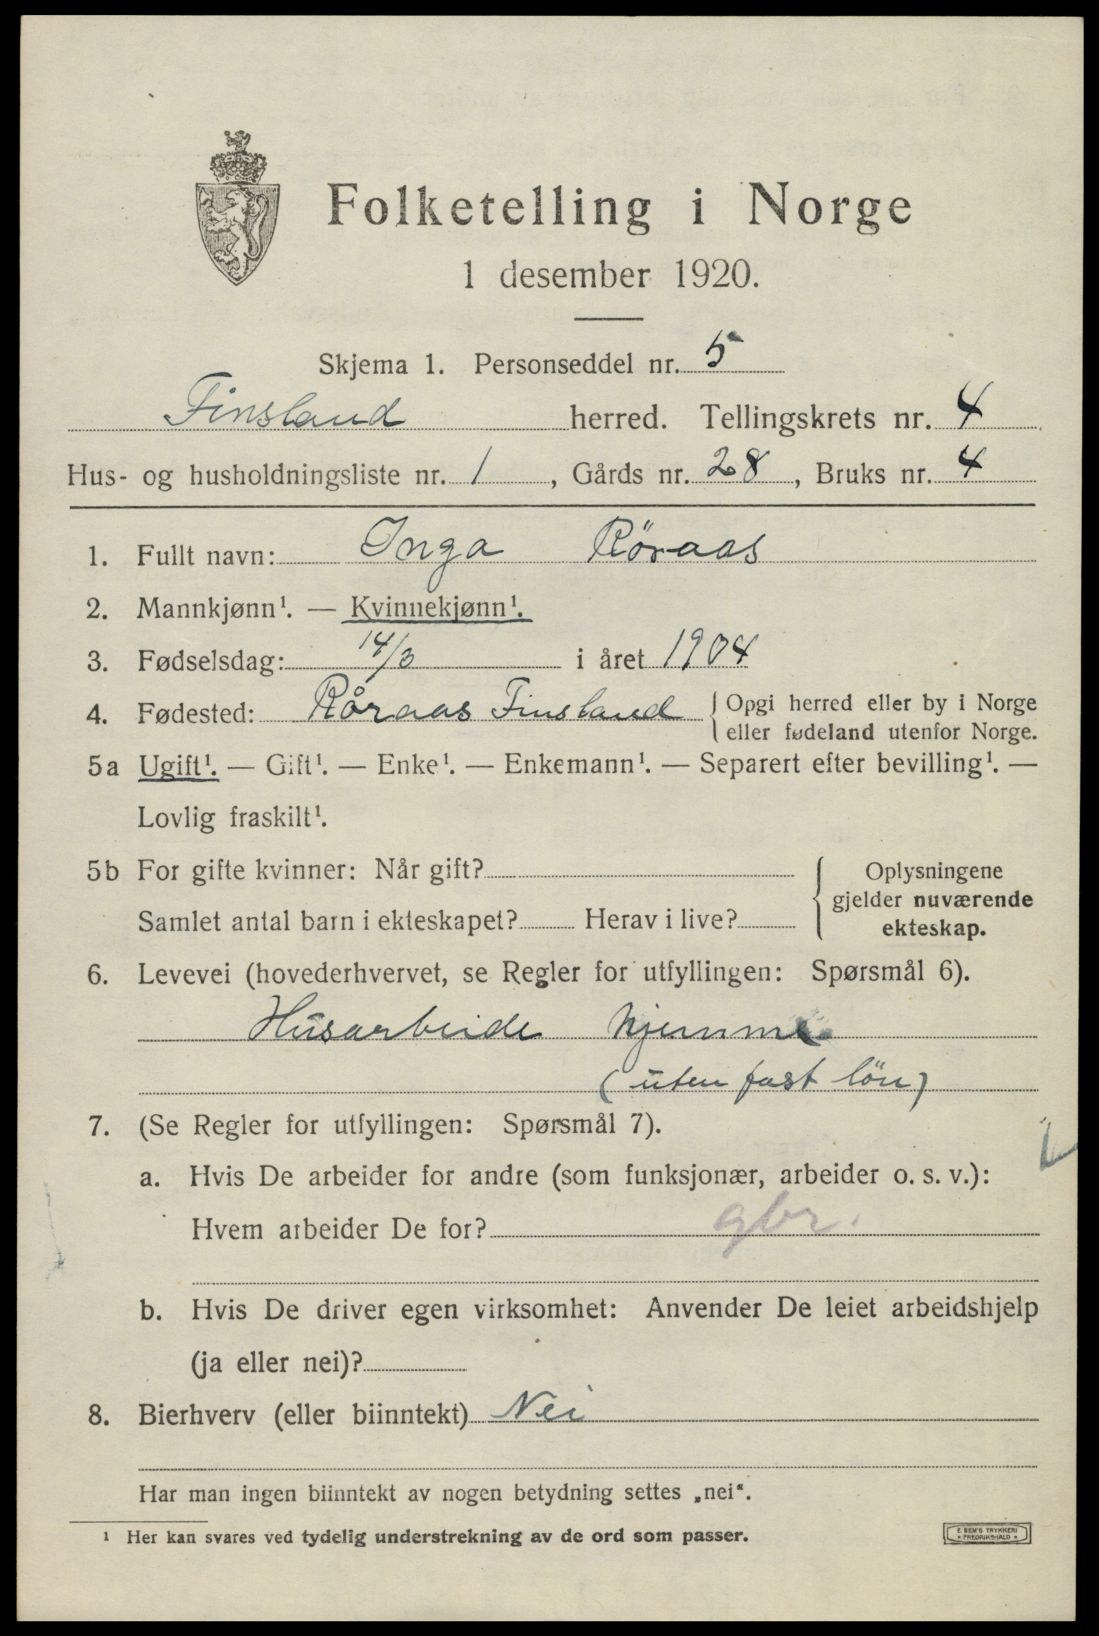 Folketelling i Norge
1 desember 1920.
Skjema 1. Personseddel nr. 5
Finsland herred. Tellingskrets nr. 4
Hus- og husholdningsliste nr. 1, Gårds nr. 28, Bruks nr. 4
1. Fullt navn: Inga Röraas
2. Mannkjønn¹. — Kvinnekjønn¹.
3. Fødselsdag: 14/3 i året 1904
4. Fødested: Röraas Finsland { Opgi herred eller by i Norge
eller fødeland utenfor Norge.
5a Ugift¹. — Gift¹. — Enke¹. — Enkemann¹. — Separert efter bevilling¹. —
Lovlig fraskilt¹.
5b For gifte kvinner: Når gift?
Samlet antal barn i ekteskapet? Herav i live?
{ Oplysningene
gjelder nuværende
ekteskap.
6. Levevei (hovederhvervet, se Regler for utfyllingen: Spørsmål 6).
Husarbeide hjemme
(uten fast lön)
7. (Se Regler for utfyllingen: Spørsmål 7).
a. Hvis De arbeider for andre (som funksjonær, arbeider o. s. v.):
Hvem arbeider De for? gbr.
b. Hvis De driver egen virksomhet: Anvender De leiet arbeidshjelp
(ja eller nei)?
8. Bierhverv (eller biinntekt) Nei
Har man ingen biinntekt av nogen betydning settes „nei“.
¹ Her kan svares ved tydelig understrekning av de ord som passer.
E. SEM'S TRYKKERI
FREDRIKSHALD